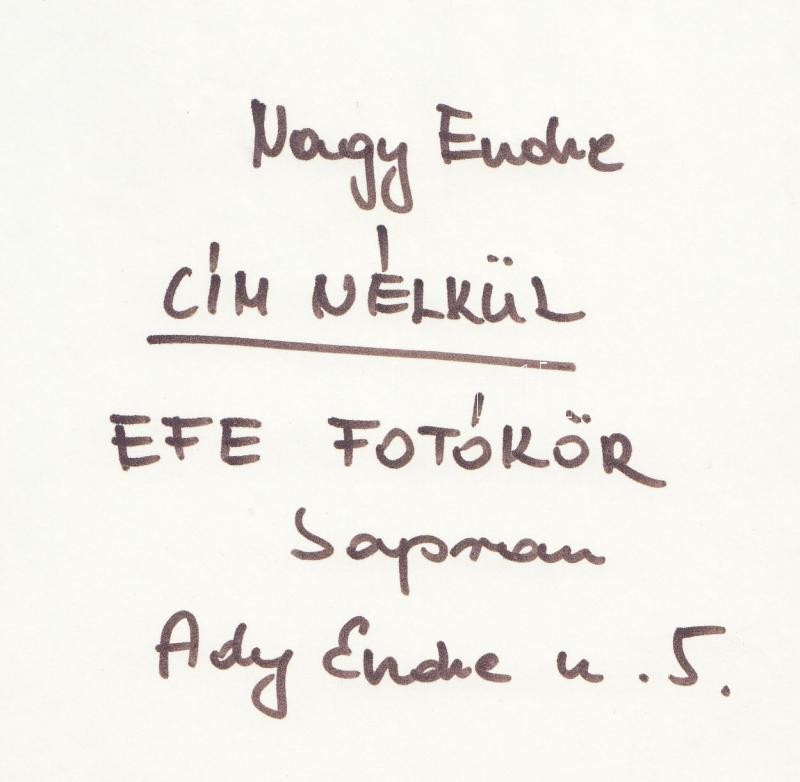 Nagy Endre
CÍM NÉLKÜL
EFE FOTÓKÖR
Sopron
Ady Endre u. 5.